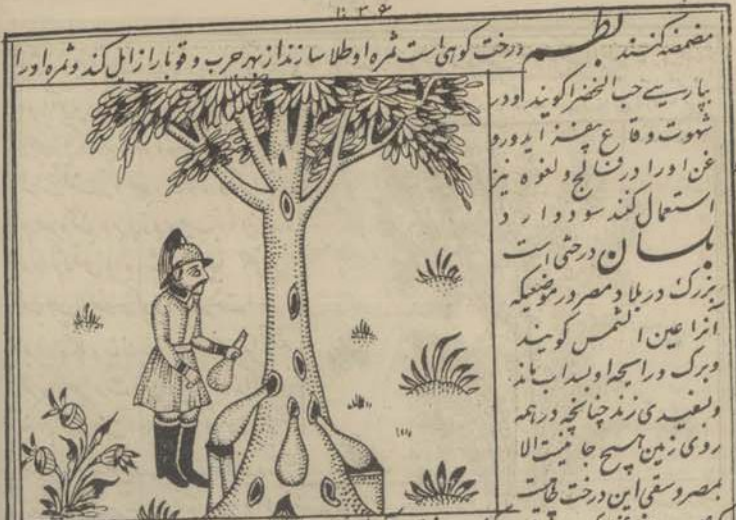 مضمضه کنند بطم درخت کوهی است ثمره او طلا سازند از بهر جرب و قوبا را زایل کند و ثمره او را
بپارسی حب الخضرا کویند و در
شهوت وقاع بیفزاید و رو
غن او را در فالج و لقوه نیز
استعمال کنند سود دارد
بلسان درختی است
بزرک در بلاد مصر در موضعیکه
آنرا عین الشمس کویند
و برک و رایحه او بسداب ماند
و بسفیدی زند چنانچه در همه
روی زمین هیچ جا نیست الا
بمصر و سقی این درخت